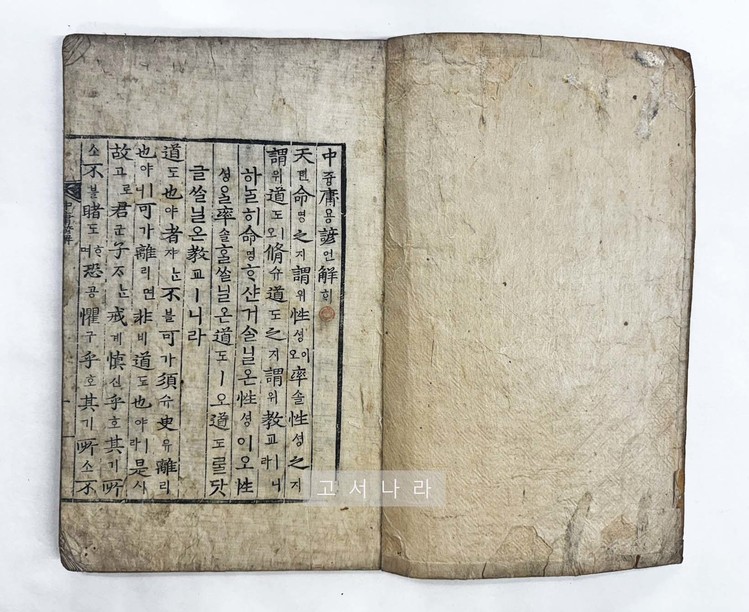 中즁庸용諺언解ᄒᆡ
天텬命명之지謂위性셩이오率솔性셩之지
謂위道도ㅣ오脩슈道도之지謂위教교ㅣ니라
하ᄂᆞᆯ히命명ᄒᆞ샨거슬닐온性셩이오性
셩을率솔ᄒᆞᆯ쓸닐온道도ㅣ오道도ᄅᆞᆯ닷
글쓸닐온教교ㅣ니라
道도也야者쟈ᄂᆞᆫ不블可가須슈臾유離리
也야ㅣ니可가離리면非비道도也야ㅣ라是시
故고로君군子ᄌᆞᄂᆞᆫ戒계慎신乎호其기所
소不블睹도ᄒᆞ며恐공懼구乎호其기所소不
中庸諺解
고서나라